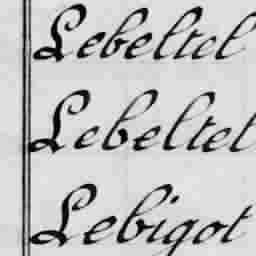 Lebeltel
Lebeltel
Lebigot